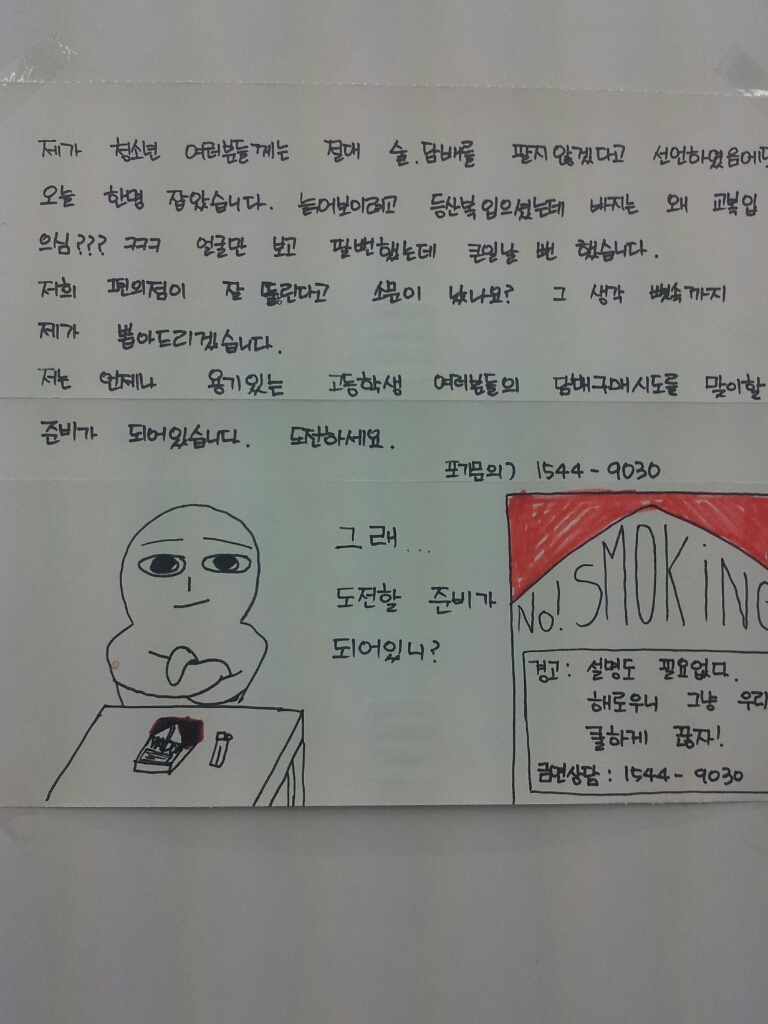 제가 청소년 여러분들께는 절대 술.담배를 팔지않겠다고 선언하였음에도
오늘 한명 잡았습니다. 늙어보이려고 등산복입으셨는데 바지는 왜 교복입
의심??? ㅋㅋㅋ 얼굴만 보고 팔뻔했는데 큰일날 뻔 했습니다.
저희 편의점이 잘 뚫린다고 소문이 났나요? 그 생각 뼛속까지
제가 뽑아드리겠습니다.
저는 언제나 용기있는 고등학생 여러분들의 담배구매시도를 맞이할
준비가 되어있습니다. 도전하세요.
포기문의) 1544-9030
그래...
도전할 준비가
되어있니?
No! SMOKiNG
경고: 설명도 필요없다.
해로우니 그냥 우리
쿨하게 끊자!
금연상담: 1544-9030